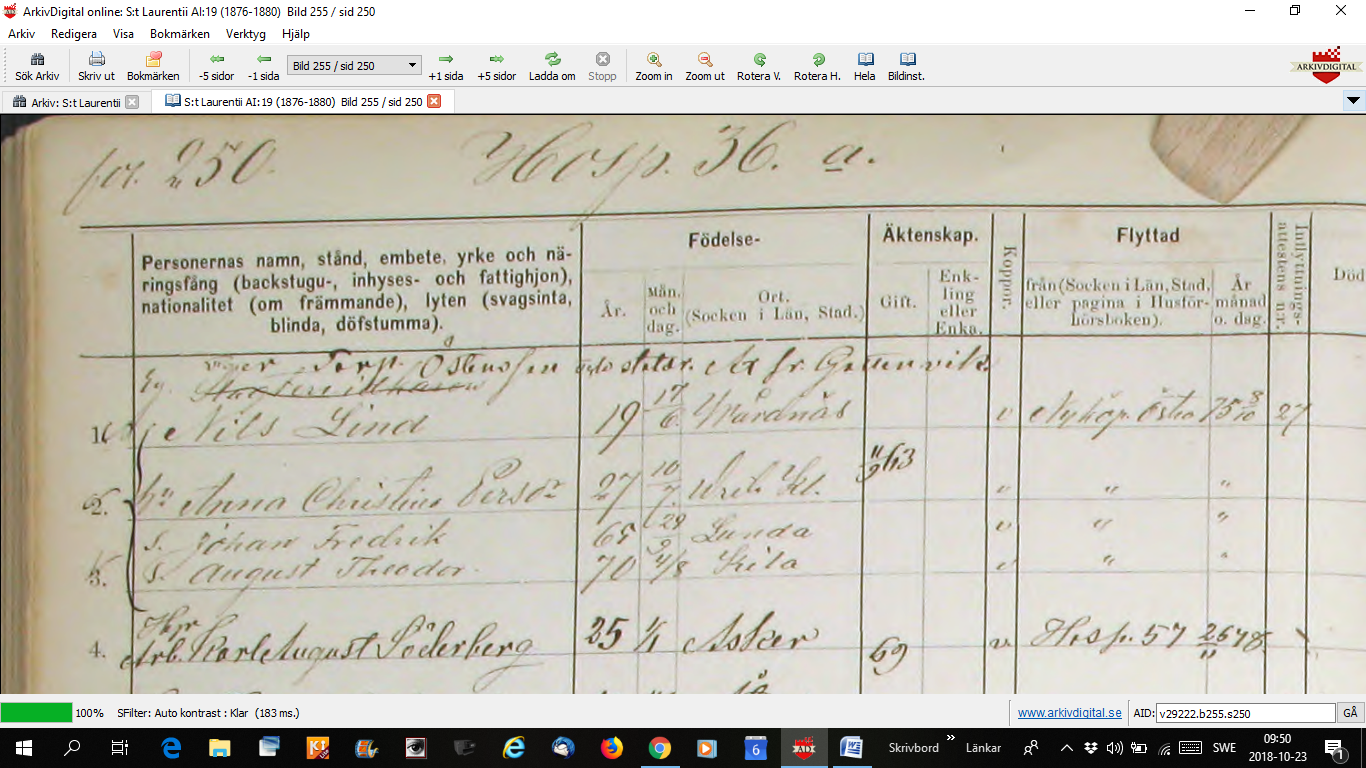 ArkivDigital online: S:t Laurentii AI:19 (1876-1880) Bild 255 / sid 250
Arkiv Redigera Visa Bokmärken Verktyg Hjälp
Sök Arkiv Skriv ut Bokmärken -5 sidor -1 sida Bild 255 / sid 250 +1 sida +5 sidor Ladda om Stopp Zoom in Zoom ut Rotera V. Rotera H. Hela Bildinst. ARKIVDIGITAL
Arkiv: S:t Laurentii S:t Laurentii AI:19 (1876-1880) Bild 255 / sid 250
250. Hosp. 36. a.
Personernas namn, stånd, embete, yrke och nä-
ringsfång (backstugu-, inhyses- och fattighjon),
nationalitet (om främmande), lyten (svagsinta,
blinda, döfstumma).
Födelse-
År.
Mån.
och
dag.
Ort.
(Socken i Län, Stad.)
Äktenskap.
Gift.
Enk-
ling
eller
Enka.
Koppor.
Flyttad
från (Socken i Län, Stad,
eller pagina i Husför-
hörsboken).
År
månad
o. dag.
Inflyttnings-
attestens n:r.
Död
Nils Lind 19 17/6 v Nyköp. Östra 75 8/10 27
2. Anna Christina 27 10/7 63 " " "
s. Johan Fredrik 65 29/9 Lunda v " "
3. s. August Theodor. 70 4/8 Kila v " "
4. Arb. Karl August Söderberg 35 1/1 Asker 69 v. Hosp. 57 26/11 78
100% SFilter: Auto kontrast : Klar (183 ms.) www.arkivdigital.se AID: v29222.b255.s250 GÅ
Skrivbord » Länkar SWE 09:50
2018-10-23